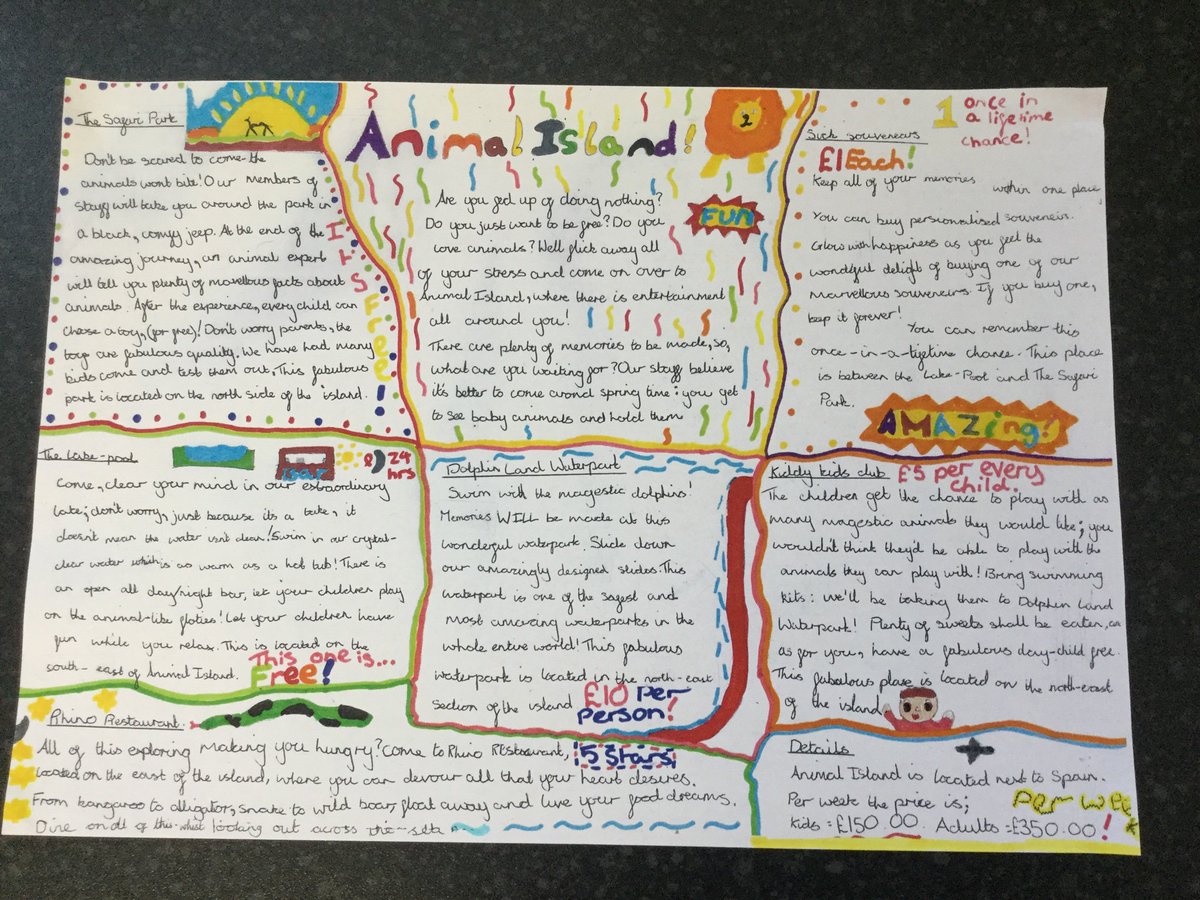 The Safari Park
Don't be scared to come the
animals wont bite! Our members of
staff will take you around the park in
a black, comfy jeep. At the end of the
amazing journey, an animal expert
will tell you plenty of marvellous facts about
animals. After the experience, every child can
choose a toy, (for free)! Don't worry parents, the
toys are fabulous quality. We have had many
kids come and test them out. This fabulous
park is located on the north side of the island.
It's Free!
Animal Island!
2
FUN
Are you fed up of doing nothing?
Do you just want to be free? Do you
love animals? Well flick away all
of your stress and come on over to
Animal Island, where there is entertainment
all around you!
There are plenty of memories to be made, so,
what are you waiting for? Our staff believe
it's better to come around spring time: you get
to see baby animals and hold them
1 once in
a lifetime
chance!
Sick souveneirs
£1 Each!
Keep all of your memories within one place
You can buy personalised souveneirs.
Glow with happiness as you feel the
wondful delight of buying one of our
marvellous souveneirs. If you buy one,
keep it forever!
You can remember this
once-in-a-lifetime chance. This place
is between the Lake-Pool and The Safari
Park.
AMAZing!
The Lake-pool
isbar
24
hrs
Come, clear your mind in our estraordinary
lake; don't worry, just because its a lake, it
doesn't mean the water isn't clear! Swim in our crystal-
clear water which is as warm as a hot tub! There is
an open all day/night bar, let your children play
on the animal-like floties! Let your children have
fun while you relax. This is located on the
south-east of Animal Island.
This one is...
Free!
Dolphin Land Waterpark
Swim with the magestic dolphins!
Memories WILL be made at this
wonderful waterpark. Slide down
our amazingly designed slides. This
waterpark is one of the safest and
most amazing waterparks in the
whole entire world! This fabulous
waterpark is located in the north-east
section of the island
£10 Per
Person!
Kiddy kids club
£5 per every
child.
The children get the chance to play with as
many magestic animals they would like; you
wouldn't think they'd be able to play with the
animals they can play with! Bring swimming
kits: we'll be taking them to Dolphin Land
Waterpark! Plenty of sweets shall be eaten, an
as for you, have a fabulous day-child free.
This fabulous place is located on the north-east
of the island
Rhino Restaurant
All of this exploring making you hungry? Come to Rhino REstaurant,
5 Stars
located on the east of the island, where you can devour all that your heart desires.
From kangaroo to alligator, snake to wild boar, float away and live your food dreams.
Dine on all of this whist looking out across the
Details
Animal Island is located next to Spain.
Per week the price is;
Kids = £150.00. Adults = £350.00!
Per